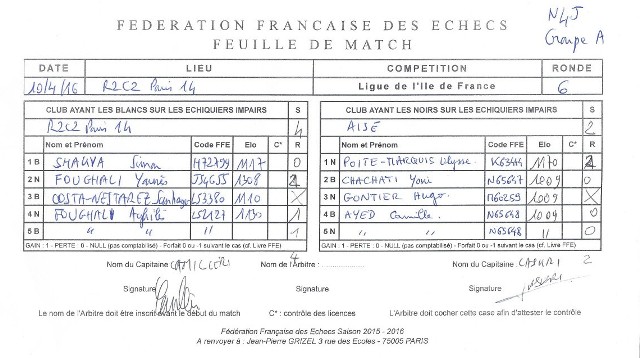 FEDERATION FRANCAISE DES ECHECS
FEUILLE DE MATCH
N4J
Groupe A
DATE LIEU COMPETITION RONDE
10/4/16 R2C2 Paris 14 Ligue de l'Ile de France 6
CLUB AYANT LES BLANCS SUR LES ECHIQUIERS IMPAIRS S
R2C2 Paris 14 4
Nom et Prénom Code FFE Elo C* R
1 B Simon H72799 1117 0
2 N FOUGHALI Younès J54655 1308
3 B 1110 X
4 N FOUGHALI 1130 1
5 B " " " 1
GAIN : 1 - PERTE : 0 - NULL (pas comptabilisé) - Forfait 0 ou -1 suivant le cas (cf. Livre FFE)
4
CLUB AYANT LES NOIRS SUR LES ECHIQUIERS IMPAIRS S
AISE 2
Nom et Prénom Code FFE Elo C* R
1 N POITE-MARQUIS Ulysse K63444 1170
2 B CHACHATI Yoni N65647 1009 0
3 N GONTIER Hugo M60259 1009 X
4 B AYED Camille N65648 1009 0
5 N " " N65648 " 0
GAIN : 1 - PERTE : 0 - NULL (pas comptabilisé) - Forfait 0 ou -1 suivant le cas (cf. Livre FFE)
2
Nom du Capitaine CAMILLERI Nom de l'Arbitre : Nom du Capitaine :
Signature Signature Signature
Le nom de l'Arbitre doit être inscrit avant le début du match C* : contrôle des licences L'Arbitre doit cocher cette case afin d'attester le contrôle
Fédération Française des Echecs Saison 2015 - 2016
A renvoyer à : Jean-Pierre GRIZEL 3 rue des Ecoles - 75005 PARIS